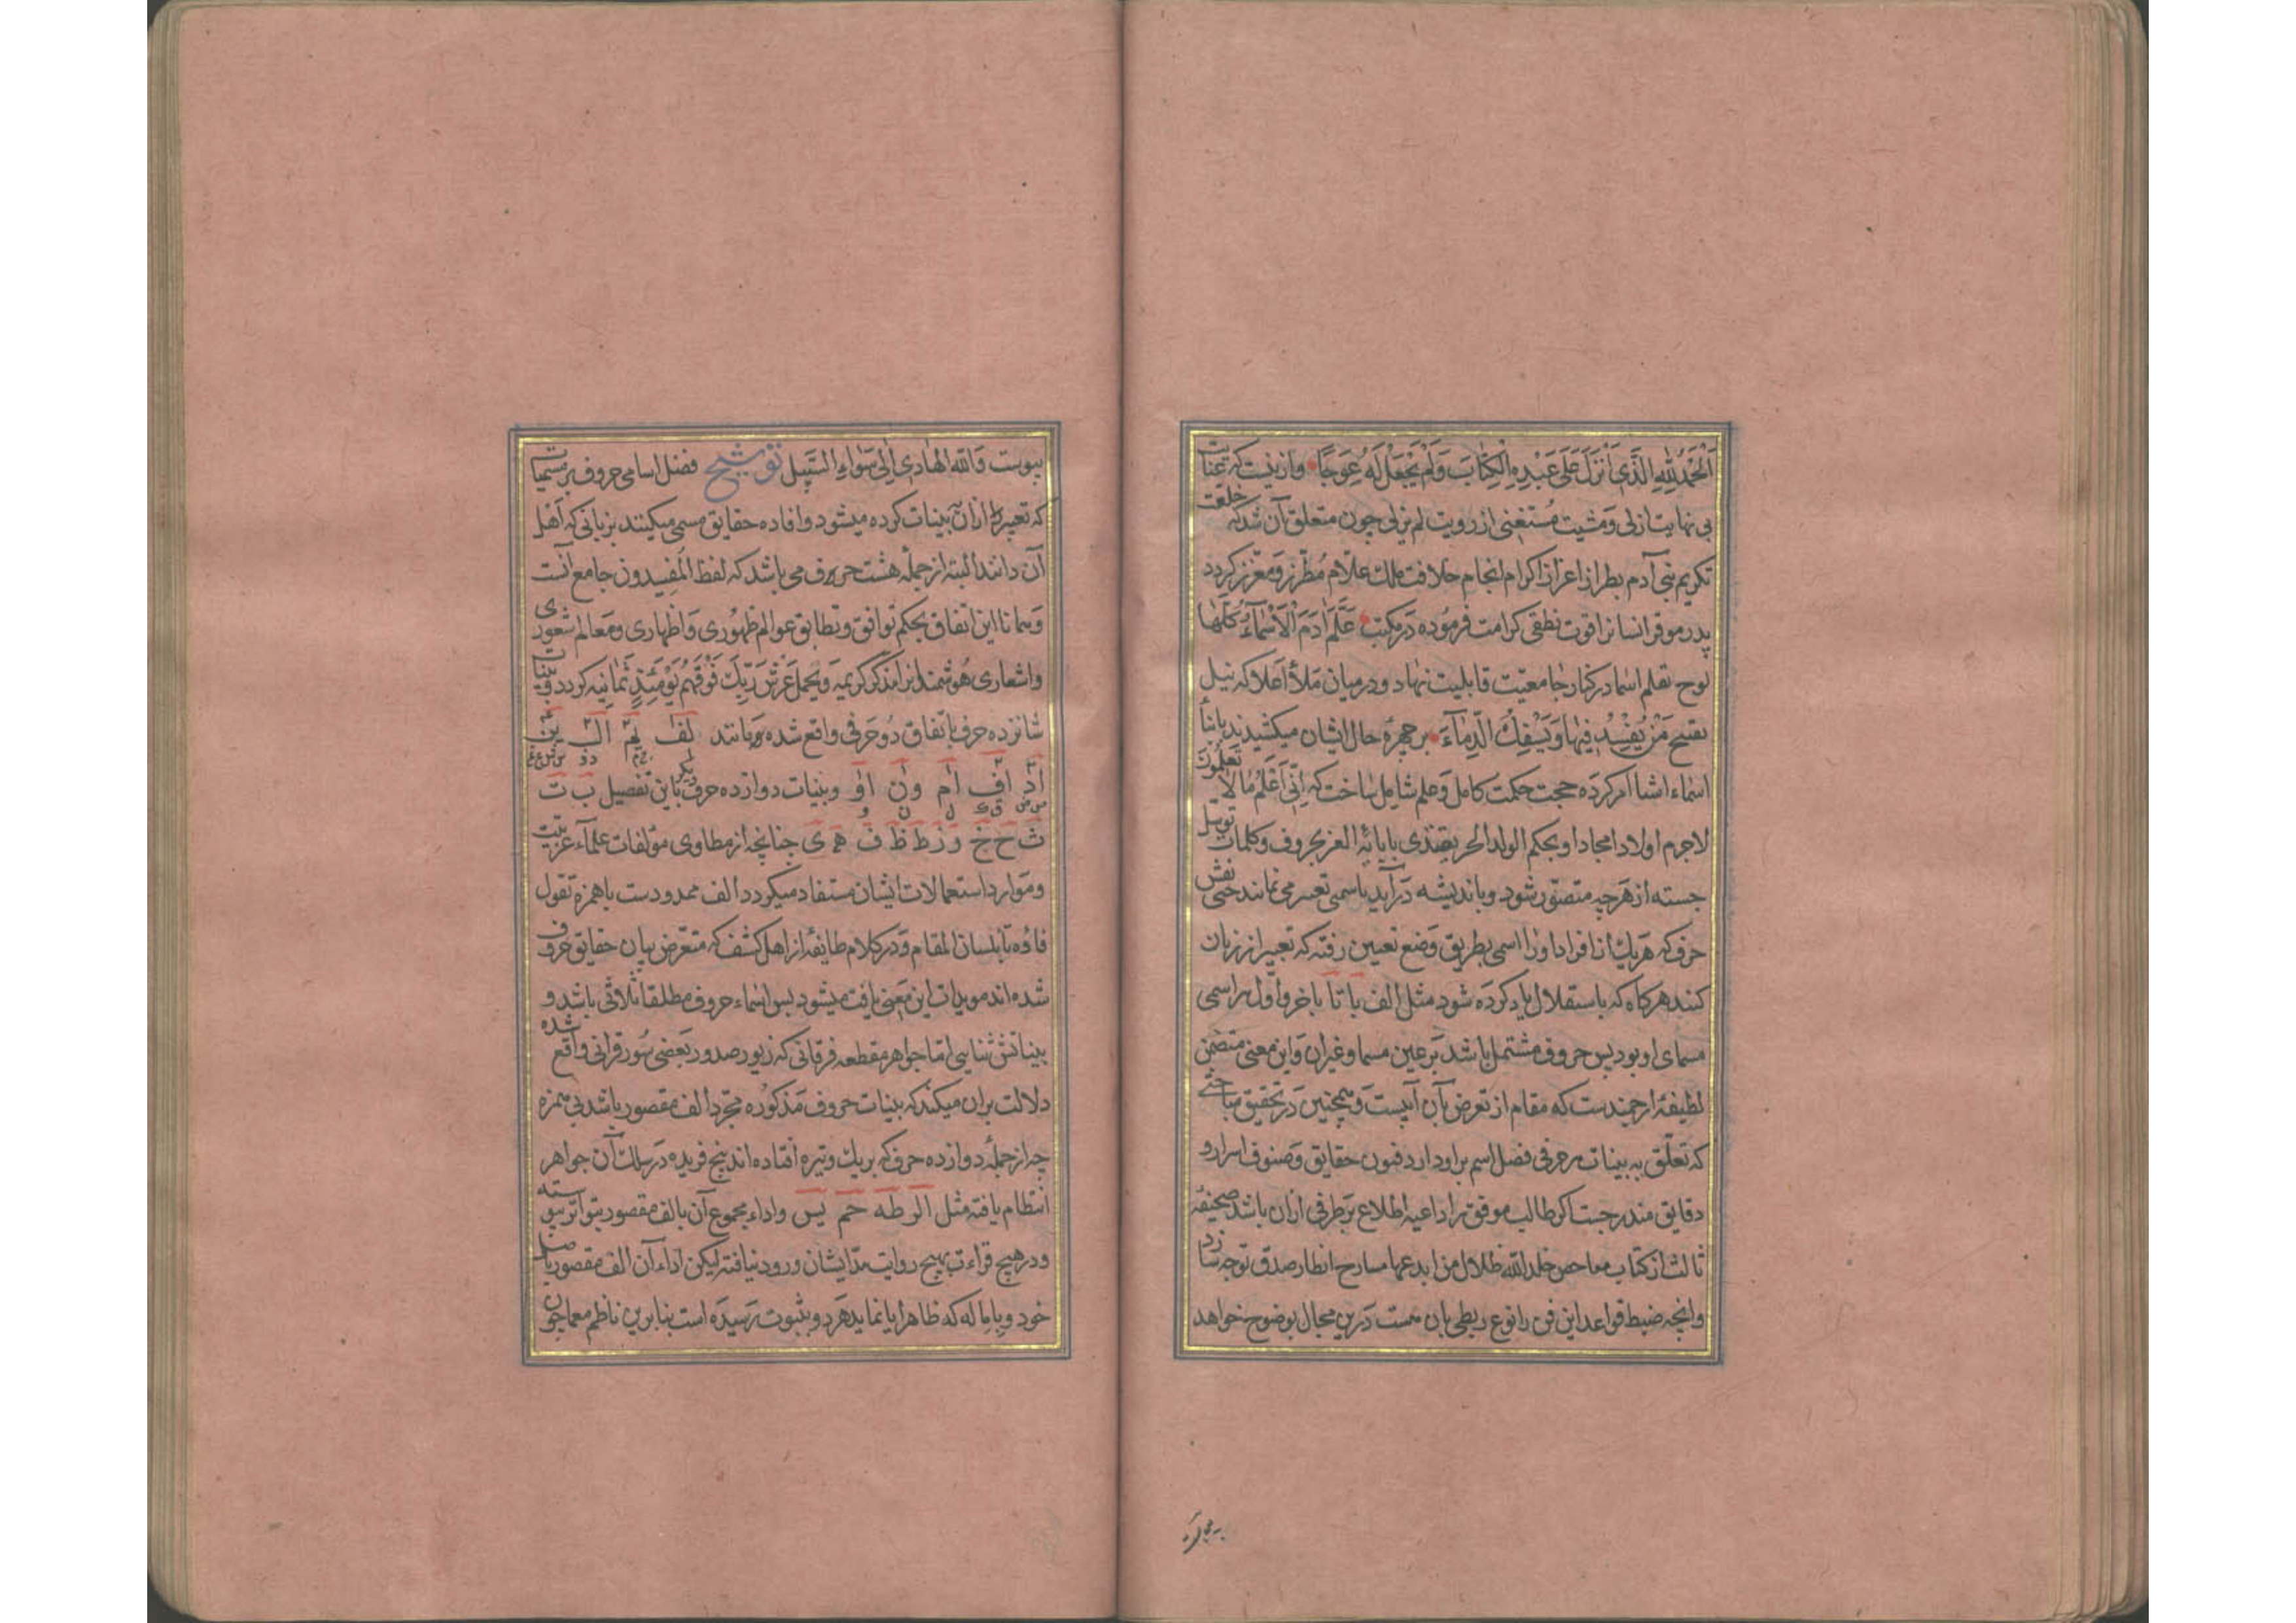 اَلْحَمْدُ لِلّٰهِ الَّذِی اَنْزَلَ عَلٰی عَبْدِهِ الْکِتٰابَ وَلَمْ یَجْعَلْ لَهُ عِوَجًا وازینست که عنایت
بی نهایت ازلی وَمشیت مُستغنی از رویت لم یزلی چون متعلق آن شد که خلعت
تکریم بنی آدم بطراز اعزاز اکرام انجام خلافت ملک علّام مُطرّز وَمعزّز کردد
پدر موقر انسانرا قوت نطقی کرامت فرمُوده دَر مکتب عَلَّمَ اٰدَمَ الْاَسْمٰآءَ کُلَّهٰا
لوح تعلم اسما در کنار جامعیّت قابلیت نهاد و درمیان مَلأ اَعلا که نیل
تقبیح مَنْ یُفْسِدُ فِیهٰا وَیَسْفِکُ الدِّمٰآءَ بر چهرهٔ حال ایشان میکشیدند بانبأ
اسماء اشا امر کرده حجت حکمت کامل وَعلم شامل ساخت که اِنّی اَعْلَمُ مٰا لٰا تَعْلَمُونَ
لاجرم اولاد امجاد او بحکم الولد الحر یقتدی بابائه الغر بحروف وکلمات توسل
جسته از هَرچه متصوّر شود وباندیشه دَرآید باسمی تعبیر می نمایند حتی نفس
حرف که هَریک از افراد اورا اسمی بطریق وَضع تعیین رفته که تعبیر از زبان
کنند هرکاه که باستقلال یاد کرده شود مثل الف با تا باخر واول هراسمی
مسمای او بود پس حروف مشتمل باشد بَر عین مسما وغیران وَاین معنی متضمن
لطیفهٔ ارجمندست که مقام از تعرض بآن آبیست وَهمچنین دَر تحقیق مباحثی
که تعلّق به بینات هرحرفی فضل اسم براو دارد فنون حقایق وَصنوف اسرار و
دقایق مندرجست اکر طالب موفق را داعیه اطلاع بَرطرفی ازان باشد صحیفهٔ
ثالث از کتاب مفاحص خلد الله ظلال من ابدعها مسارح انظار صدق توجه سازد
وانچه ضبط قواعد این فن را نوع ربطی بان هست دَرین مجال بوضوح خواهد
پیوست وَاللّٰه الهٰادی اِلیٰ سَوٰاءِ السَّبیل توشیح فضل اسامی حروف بر مسمیات
که تعبیر ازان به بینات کرده میشود وافاده حقایق مسمی میکنند بزبانی که اَهل
آن دانند البته از جملهٔ هشت حرف می باشد که لفظ المفیدون جامع آنست
وَهمانا این اتفاق بحکم توافق وتطابق عوالم ظهُوری وَاظهاری ومَعالم شعوری
واشعاری هُوشمندانرا مذکر کریمه وَیَحملُ عَرْشَ رَبِّکَ فَوْقَهُمْ یَوْمَئِذٍ ثَمٰانِیَه کردد وبینات
شانزده حرف باتّفاق دُوحَرفی واقع شده وَهمانند لف یم ال ین
اد اف ام ون او وبینات دوازده حرف دیکر باین تفصیل ب ت
ث ح خ ر ز ط ظ ف ه ی چنانچه از مطاوی مؤلفات علمآء عربیّت
ومَوارد استعمالات ایشان مستفاد میکردد الف ممدودست باهمزه تقول
فاؤه تا بلسان المقام وَدر کلام طایفهٔ از اهل کشف که متعرّض بیان حقایق حروف
شده اند مویدات این مَعنی یافت میشود پس اسماء حروف مطلقا ثلاثی باشد و
بیناتش ثنایی امّا جواهر مقطعه فرقانی که زیور صدور بَعضی سُور قرانی واقع شده
دلالت بران میکند که بینات حروف مَذکوُره مجرّد الف مقصور باشد بی همزه
چه از جملهٔ دوازده حرف که بریک وتیره افتاده اند پنج فریده دَر سلک آن جواهر
انتظام یافته مثل الر طه حم یس واداء مجموع آن بالف مقصور بتواتر پیوسته
ودر هیچ قراءت بهیچ روایت مدّ ایشان ورود نیافته لیکن اداء آن الف مقصور باصل
خود وبامٖاله که ظاهرا یا نماید هَردو بثبوت رَسیده است بنابرین ناظم معما چون